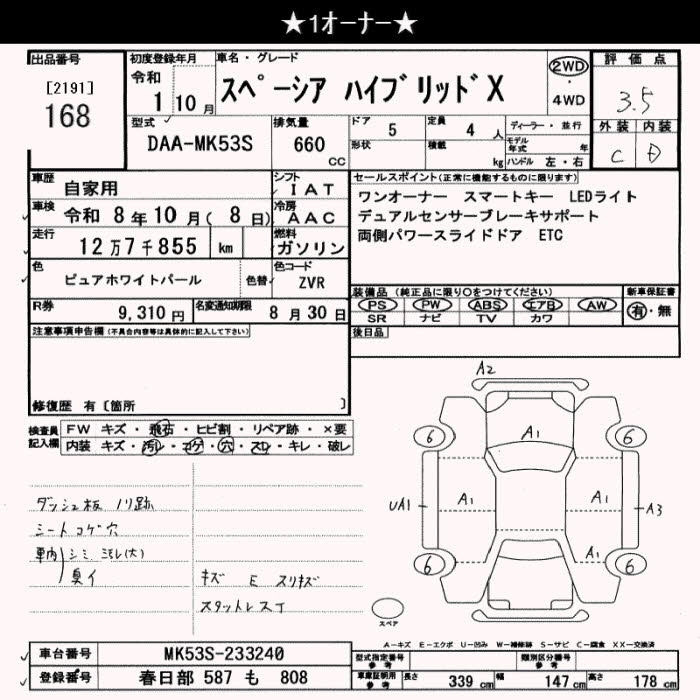 ★1オーナー★
出品番号
[2191]
168
初度登録年月
令和
1 10月
車名・グレード
スペーシア ハイブリッドX
2WD
・
4WD
評価点
3.5
外装 内装
C D
型式
DAA-MK53S
排気量
660
cc
ドア 5
形状
定員 4 人
積載 kg
ディーラー・並行
モデル年式 年
ハンドル 左・右
車歴 自家用
シフト IAT
車検 令和 8年10月( 8日)
冷房 AAC
走行 12万7千855 km
燃料 ガソリン
色 ピュアホワイトパール
色替
色コード ZVR
R券 9,310円
名変通知期限 8月30日
セールスポイント(正常に機能するものに限ります)
ワンオーナー スマートキー LEDライト
デュアルセンサーブレーキサポート
両側パワースライドドア ETC
装備品(純正品に限り○をつけてください)
PS PW ABS エアB AW
SR ナビ TV カワ
新車保証書
有・無
後日品
注意事項申告欄(不具合内容等は具体的に記入して下さい)
修復歴 有〔箇所 〕
検査員記入欄
FW キズ・飛石・ヒビ割・リペア跡・×要
内装 キズ・汚レ・コゲ・穴・スレ・キレ・破レ
ダッシュ板 ノリ跡
シート コゲ穴
車内 シミ ヨゴレ(大)
臭イ
キズ E スリキズ
スタットレスT
A2
6 A1 6
UA1 A1 A1 A3
6 A1 6
スペア
A-キズ E-エクボ U-凹み W-補修跡 S-サビ C-腐食 XX-交換済
車台番号 MK53S-233240
型式指定番号 参考
類別区分番号 参考
登録番号 春日部 587 も 808
車庫証明用 参考
長さ 339 cm 幅 147 cm 高さ 178 cm